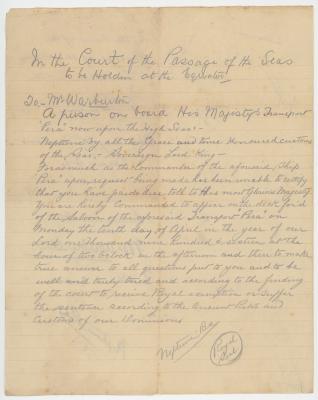 In the Court of the Passage of the Seas
to be Holden at the Equator
To Mr Warburton
A person on board His Majesty's Transport
"Pera" now upon the High Seas:-
Neptune by all the Grace and time Honoured customs
of the Seas,- Sovereign Lord King-
Forasmuch as the Commander of the aforesaid Ship
Pera upon request being made has been unable to certify
that you have paid toll to His most Glorious Majesty
You are hereby Commanded to appear on the deck for'd
of the Saloon of the aforesaid Transport "Pera" on
Monday the tenth day of April in the year of our
Lord one Thousand nine hundred & sixteen at the
hour of two o'clock in the afternoon and there to make
true answer to all questions put to you and to be
well and truly tried and according to the finding
of the court to receive Royal exemption or suffer
the sentence according to the Ancient Rites and
Customs of our Dominions
Neptune
Royal
Seal